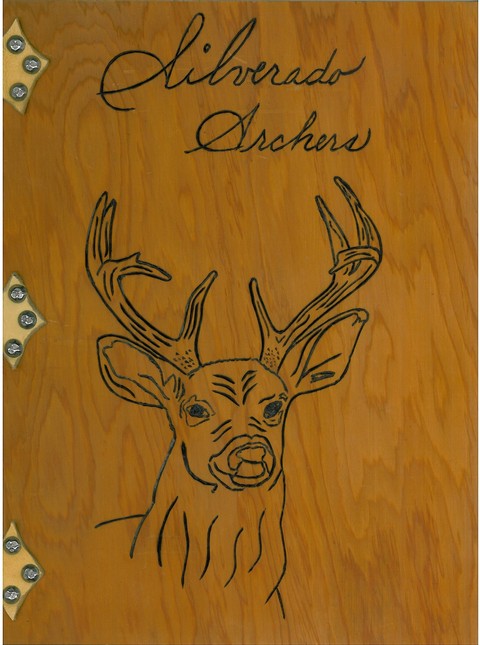 Silverado
Archers